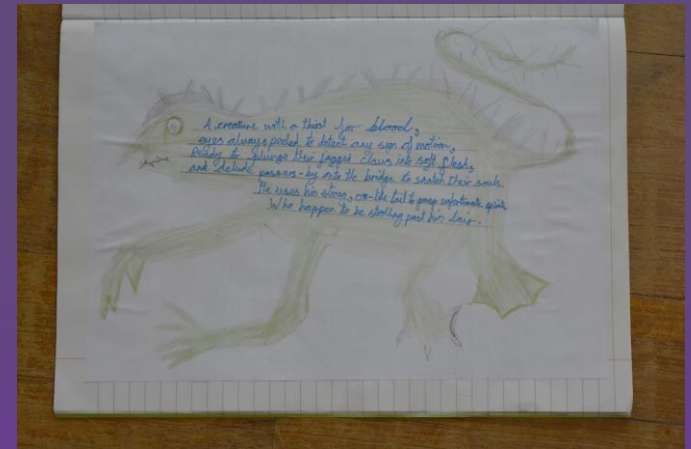 A creature with a thirst for blood,
eyes always peeled to detect any sign of motion,
Ready to plunge their jagged claws into soft flesh,
and delude passers-by onto the bridge to snatch their souls.
He uses his strong, ox-like tail to grasp unfortunate spirits
Who happen to be strolling past his lair.